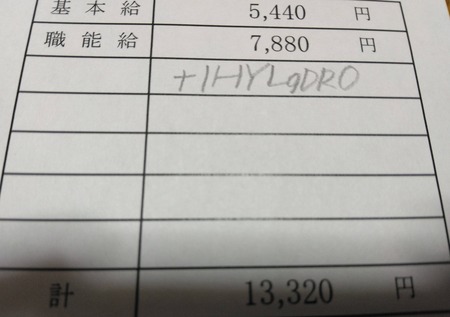 基本給 5,440 円
職能給 7,880 円
+1HYLgDRO
計 13,320 円